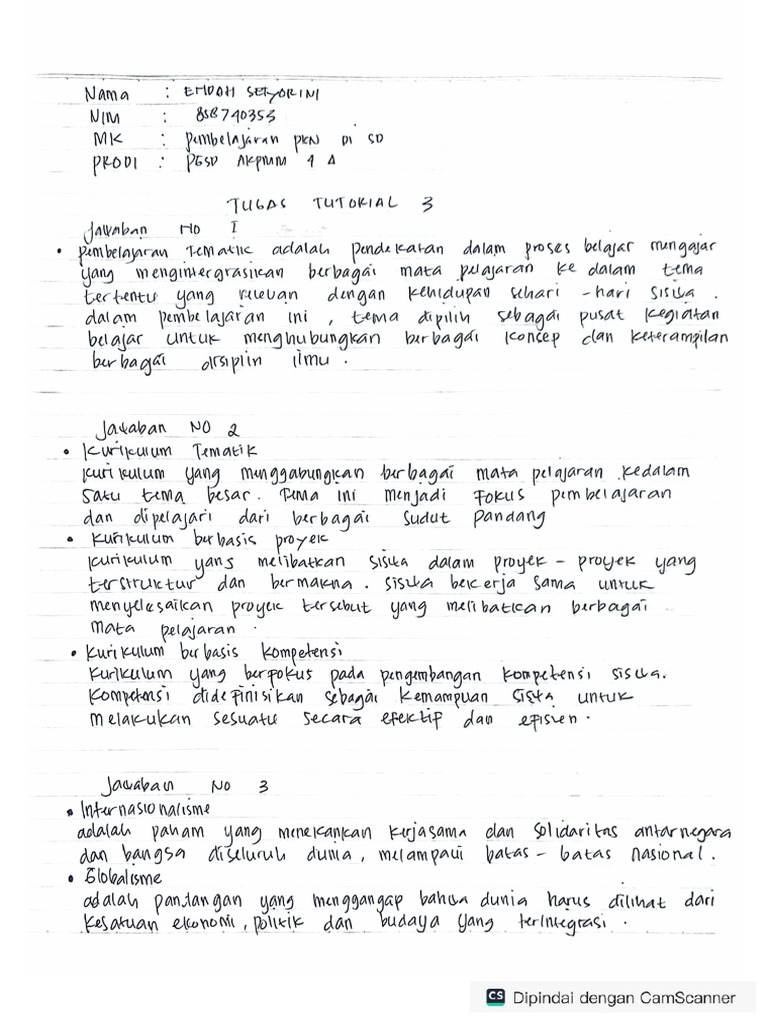 Nama : ENDAH SETYORINI
NIM : 858740353
MK : Pembelajaran PKN DI SD
PRODI : PGSD AKPMM 4 A
TUGAS TUTORIAL 3
Jawaban NO 1
• Pembelajaran Tematik adalah pendekatan dalam proses belajar mengajar
yang mengintergrasikan berbagai mata pelajaran ke dalam tema
tertentu yang relevan dengan kehidupan sehari-hari siswa.
dalam pembelajaran ini, tema dipilih sebagai pusat kegiatan
belajar untuk menghubungkan berbagai konsep dan keterampilan
berbagai disiplin ilmu.
Jawaban NO 2
• Kurikulum Tematik
Kurikulum yang menggabungkan berbagai mata pelajaran kedalam
satu tema besar. Tema ini menjadi fokus pembelajaran
dan dipelajari dari berbagai sudut pandang
• Kurikulum berbasis proyek
Kurikulum yang melibatkan siswa dalam proyek-proyek yang
terstruktur dan bermakna. siswa bekerja sama untuk
menyelesaikan proyek tersebut yang melibatkan berbagai
mata pelajaran.
• Kurikulum berbasis kompetensi
Kurikulum yang berfokus pada pengembangan kompetensi siswa.
Kompetensi didefinisikan sebagai kemampuan siswa untuk
melakukan sesuatu secara efektif dan efisien.
Jawaban NO 3
• Internasionalisme
adalah paham yang menekankan kerjasama dan solidaritas antarnegara
dan bangsa diseluruh dunia, melampaui batas-batas nasional.
• Globalisme
adalah pandangan yang menggangap bahwa dunia harus dilihat dari
kesatuan ekonomi, politik dan budaya yang terintegrasi.
CS Dipindai dengan CamScanner